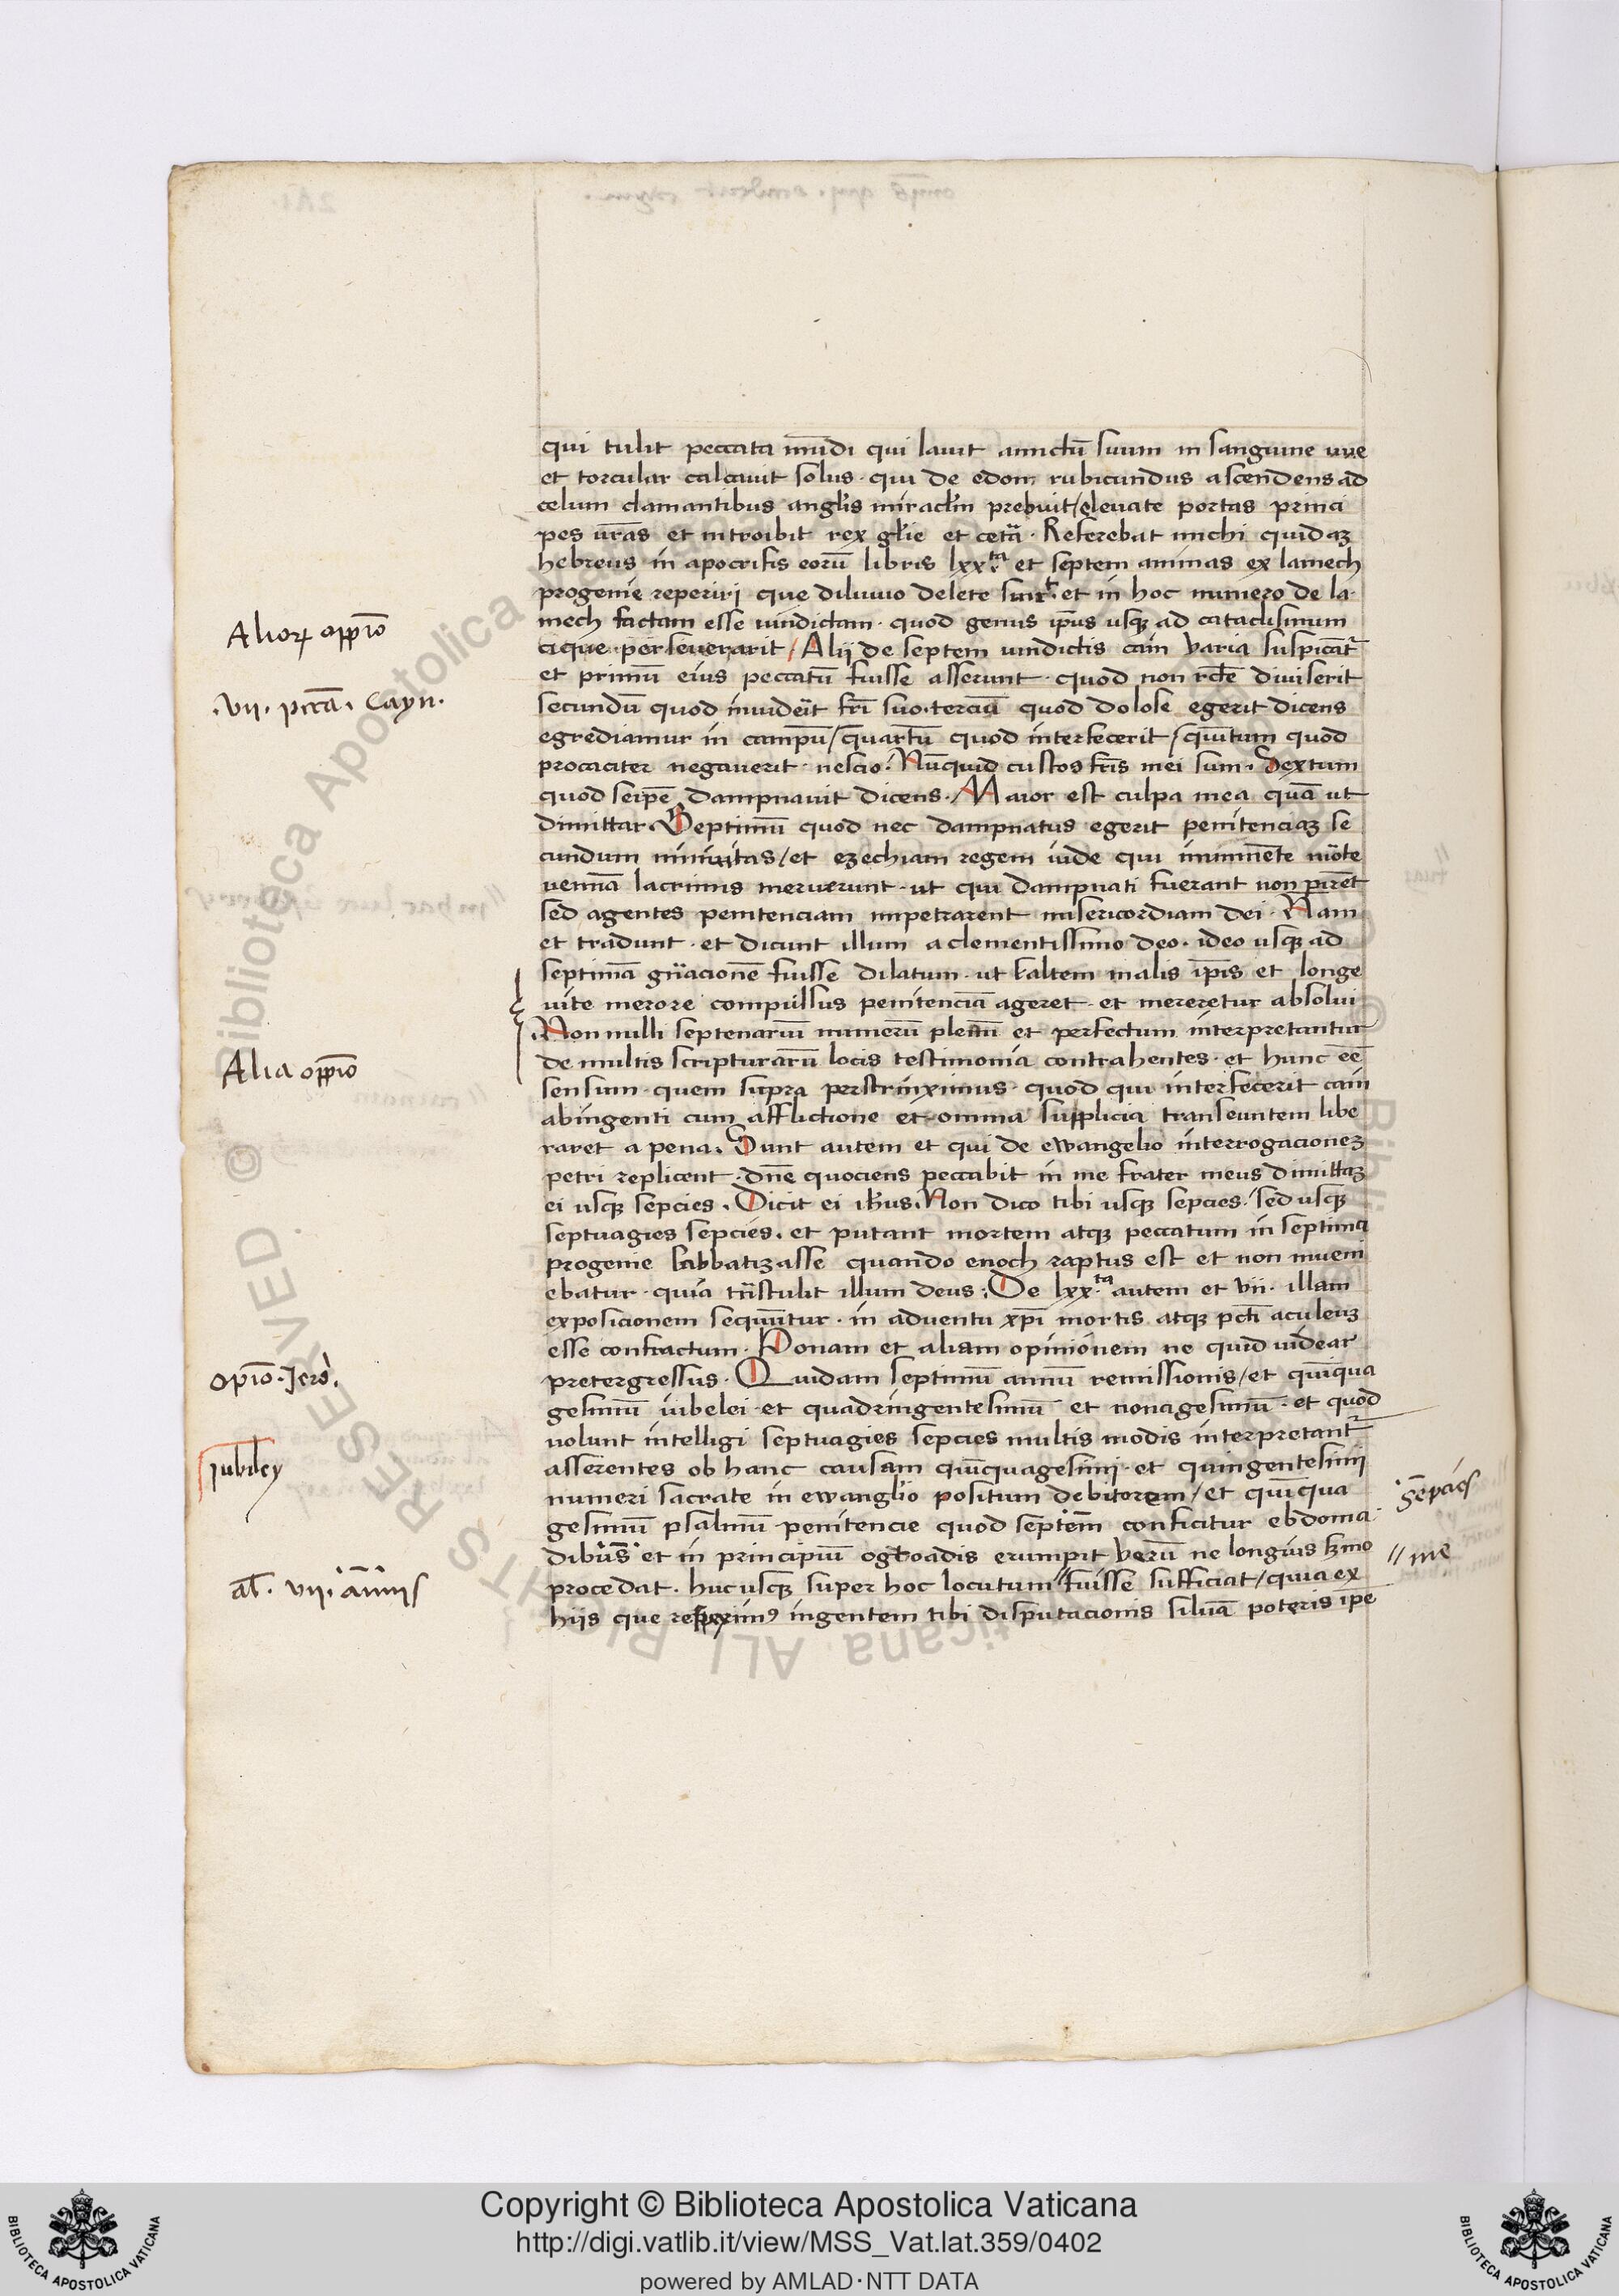 qui tulit peccata mūdi qui lauit amictū suum in sanguine uue
et torcular calcauit solus · qui de edom rubicundus ascendens ad
celum clamantibus angl̄is miracl̄m prebuit / eleuate portas princi
pes ūras et introibit rex gl̄ie et cet̄a · Referebat michi quidaʒ
hebreus in apocrifis eorū libris lxx.ta et septem animas ex lamech
progenie reperiri que diluuio delete sunt · et in hoc numero de la-
mech factam esse uindictam · quod genus ip̄ius usqʒ ad cataclismum
cique perseuerarit / Alii de septem uindictis cain varia suspicāt᷑
et primū eius peccatū fuisse asserunt · quod non rc̄te diuiserit
secundū quod inuiderit fr̄i suo · terciū quod dolose egerit dicens
egrediamur in campū / quartū quod interfecerit / quītum quod
procaciter negauerit · nescio · Nūquid custos fr̄is mei sum · Sextum
quod seip̄e dampnauit dicens · Maior est culpa mea quā ut
dimittar · Septimū quod nec dampnatus egerit penitenciaʒ se
cundum niniuitas / et eʒechiam regem iude qui iminēte mōte
lacrimis meruerunt · ut qui dampnati fuerant non pirēt
sed agentes penitenciam impetrarent misericordiam dei · Nam
et tradunt · et dicunt illum a clementissimo deo · ideo usqʒ ad
septimā gn̄acionē fuisse dilatum · ut saltem malis ip̄is et longe
uite merore compulsus penitenciā ageret · et mereretur absolui
Non nulli septenariū numerū plenū et perfectum interpretantur
de multis scripturarū locis testimonia contrahentes · et hunc ēē
sensum · quem supra perstrinximus · quod qui interfecerit cain
abingenti cum afflictione et omnia supplicia transeuntem libe
raret a pena · Sunt autem et qui de ewangelio interrogacioneʒ
petri replicent · dn̄e quociens peccabit in me frater meus dimittaʒ
ei usqʒ sepcies · Dicit ei ih̄us · Non dico tibi usqʒ sepcies / sed usqʒ
septuagies sepcies · et putant mortem atqʒ peccatum in septima
progenie sabbatiʒasse quando enoch raptus est et non inueni
ebatur · quia trāstulit illum deus · De lxx.ta autem et vii · illam
exposicionem sequūtur · in aduentu xp̄i mortis atqʒ pct̄i aculeuʒ
esse confractum · Ponam et aliam opinionem ne quid uidear
pretergressus · Quidam septimū annū remissionis / et quīqua
gesimū iubelei · et quadringentesimū et nonagesimū · et quod
uolunt intelligi septuagies sepcies multis modis interpretant᷑
asserentes ob hanc causam quīquagesimi · et quingentesimi
numeri sacrate in ewangl̄io positum debitorem / et quīqua
gesimū psalmū penitencie quod septem conficitur ebdoma
dibus et in principiū ogdoadis erumpit Verū ne longius s̄mo
procedat · huc usqʒ super hoc locutum // fuisse sufficiat / quia ex
hiis que resperximꝰ ingentem tibi disputacionis siluā poteris ip̄e
Alioꝝ oppīo
.vii. pcc̄a. Cayn.
Alia oppīo
opīo. Jero.
Jubiley
al̄. vii. annis
// me